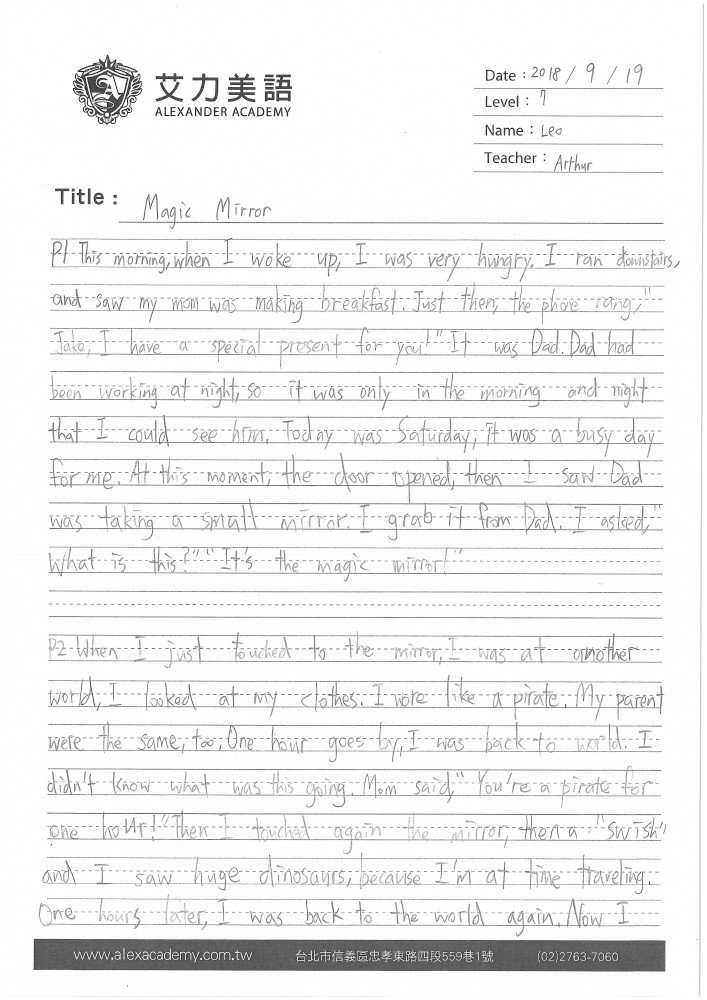 艾力美語
ALEXANDER ACADEMY
Date : 2018 / 9 / 19
Level : 7
Name : Leo
Teacher : Arthur
Title : Magic Mirror
P1 This morning, when I woke up, I was very hungry. I ran downstairs,
and saw my mom was making breakfast. Just then, the phone rang, "
Jake, I have a special present for you!" It was Dad. Dad had
been working at night, so it was only in the morning and night
that I could see him. Today was Saturday, it was a busy day
for me. At this moment, the door opened, then I saw Dad
was taking a small mirror. I grab it from Dad. I asked, "
What is this?" "It's the magic mirror!"
P2 When I just touched to the mirror, I was at another
world, I looked at my clothes. I wore like a pirate. My parent
were the same, too. One hour goes by, I was back to world. I
didn't know what was this going. Mom said, "You're a pirate for
one hour!" Then I touched again the mirror, then a "swish"
and I saw huge dinosaurs, because I'm at time traveling.
One hours later, I was back to the world again. Now I
www.alexacademy.com.tw 台北市信義區忠孝東路四段559巷1號 (02)2763-7060